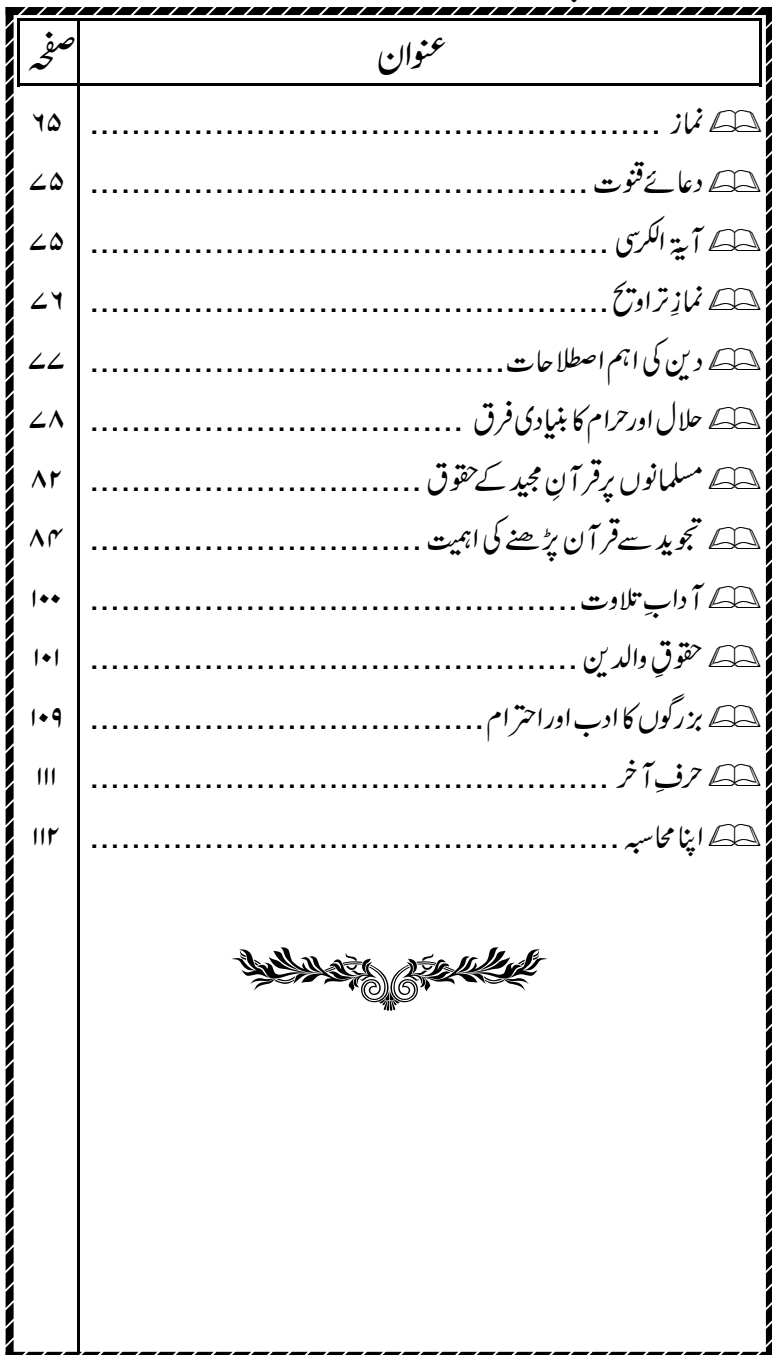 عنوان صفحہ
نماز ۶۵
دعائے قنوت ۷۵
آیۃ الکرسی ۷۵
نمازِ تراویح ۷۶
دین کی اہم اصطلاحات ۷۷
حلال اور حرام کا بنیادی فرق ۷۸
مسلمانوں پر قرآنِ مجید کے حقوق ۸۲
تجوید سے قرآن پڑھنے کی اہمیت ۸۴
آدابِ تلاوت ۱۰۰
حقوقِ والدین ۱۰۱
بزرگوں کا ادب اور احترام ۱۰۹
حرفِ آخر ۱۱۱
اپنا محاسبہ ۱۱۲